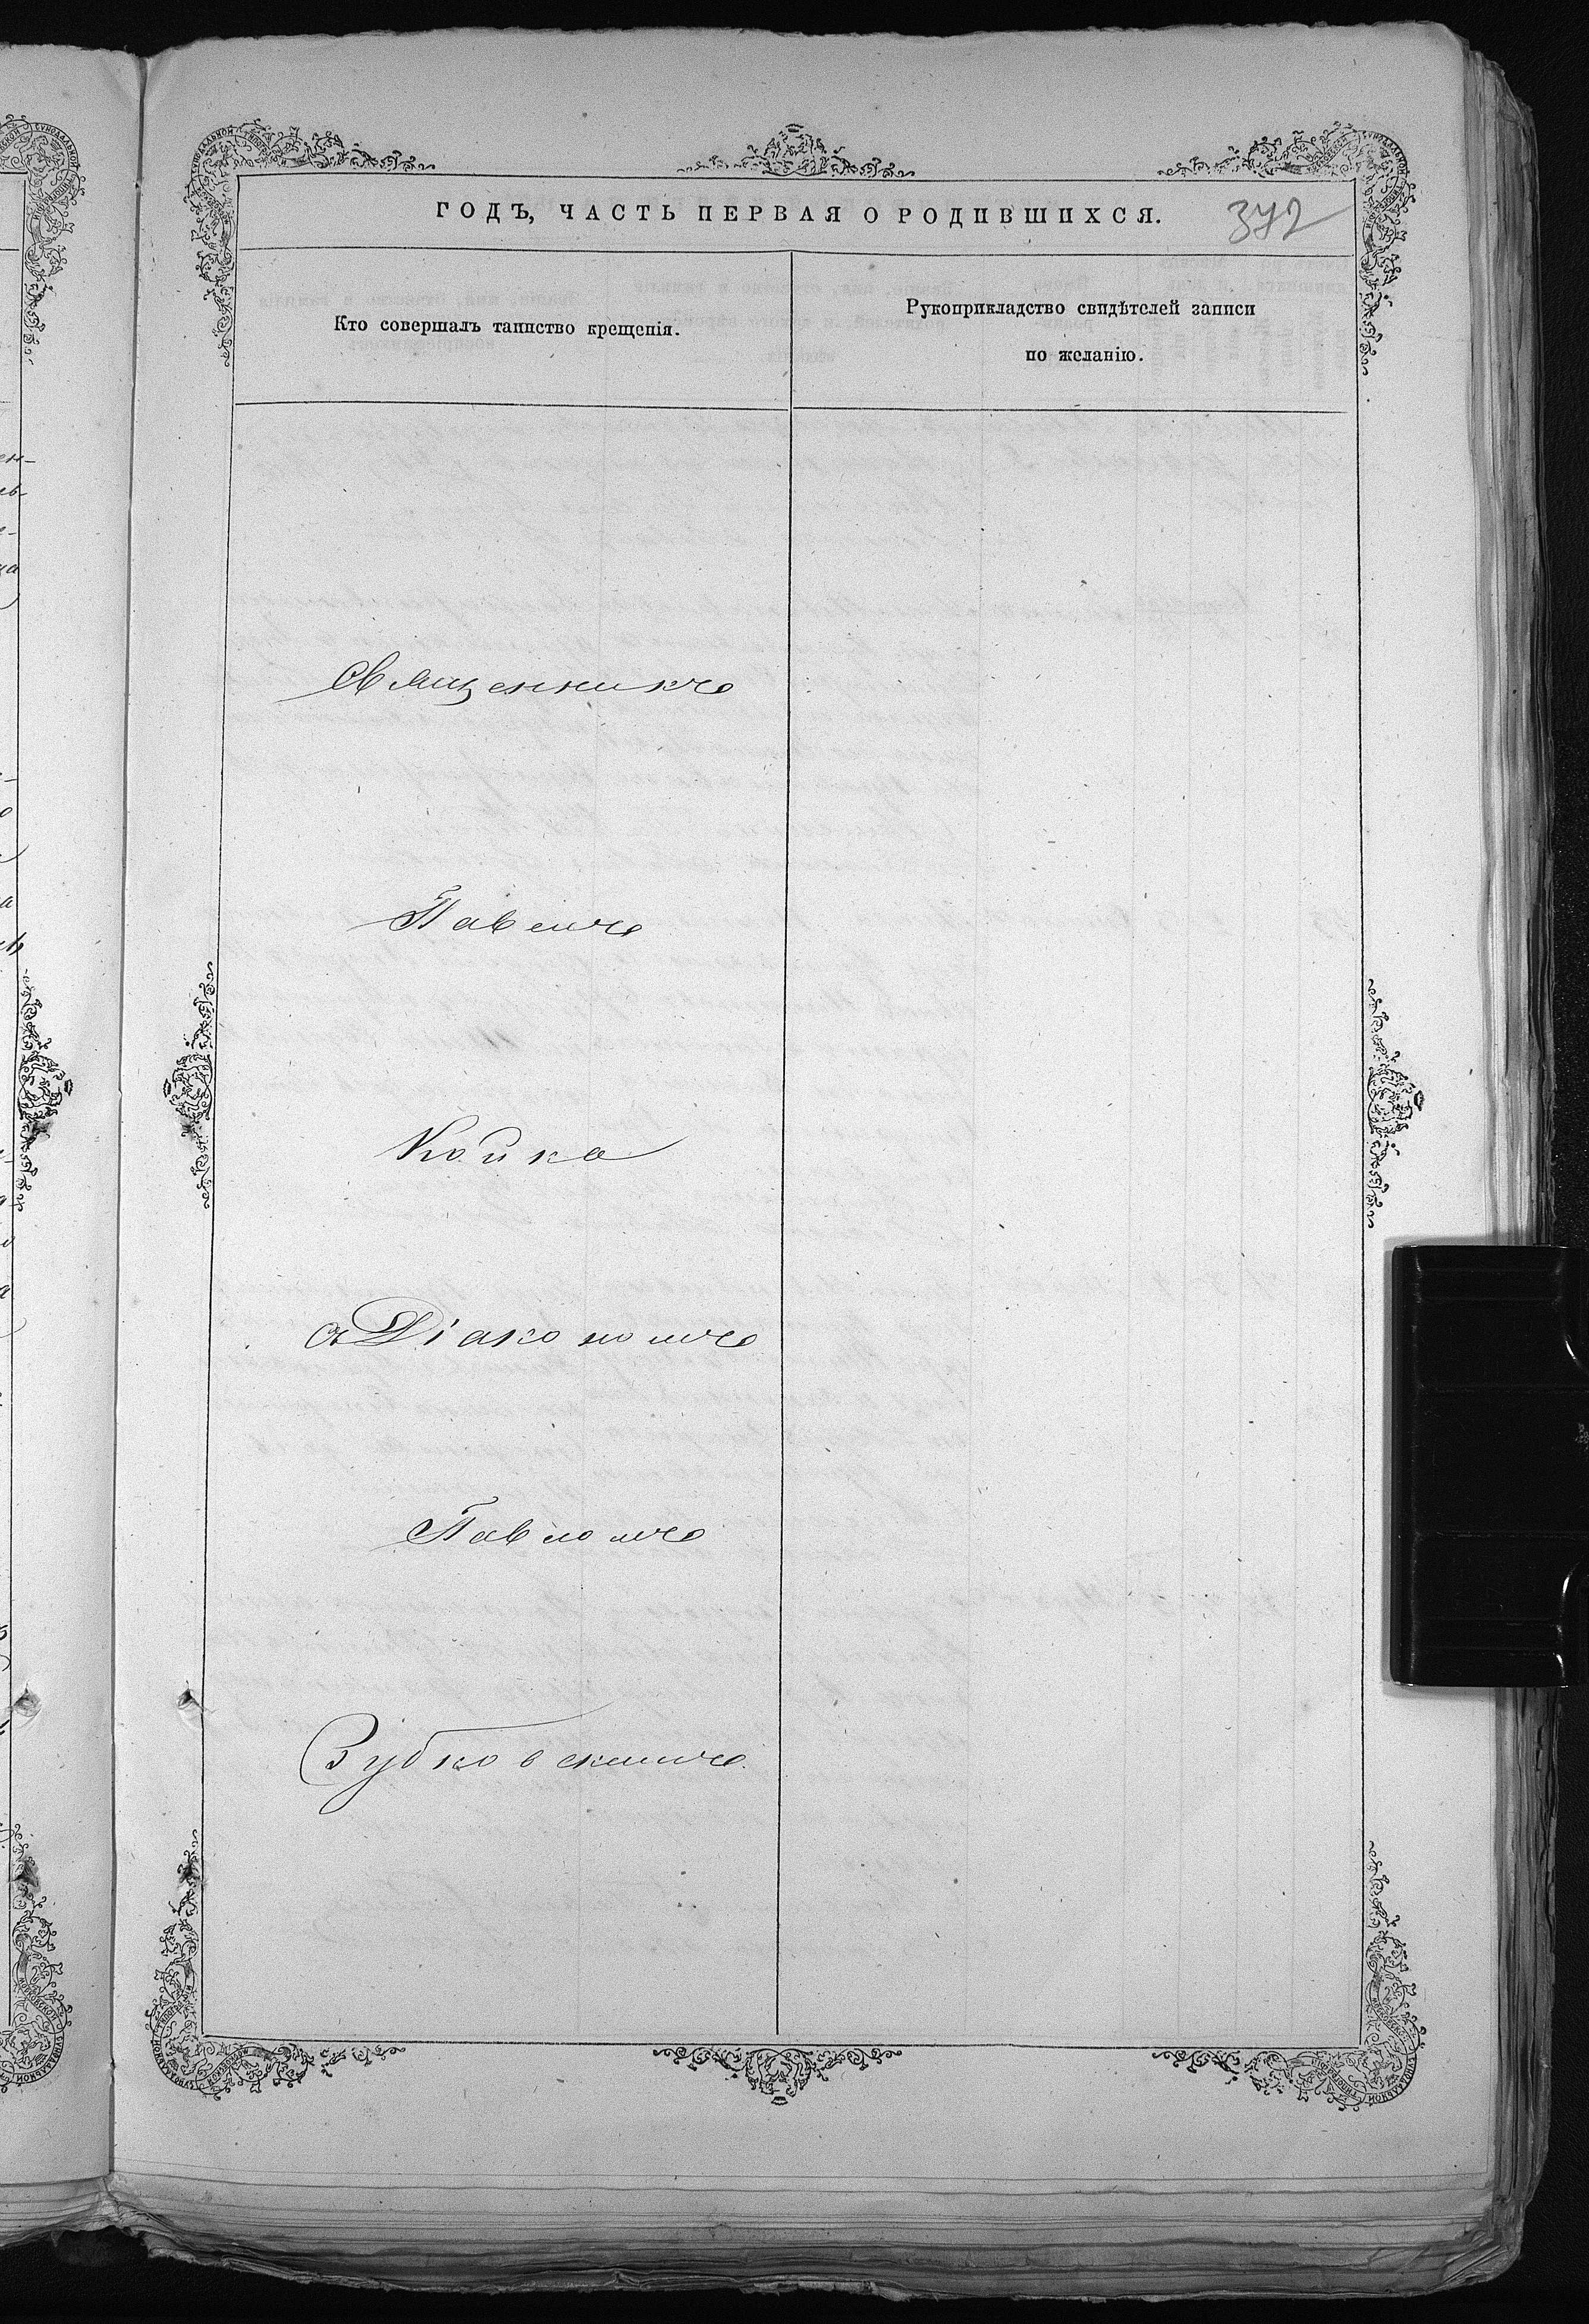 ГОДЪ, ЧАСТЬ ПЕРВАЯ О РОДИВШИХСЯ.
372
Кто совершалъ таинство крещенія.
Рукоприкладство свидѣтелей записи
по желанію.
Священникъ
Павелъ
Койка
съ Діакономъ
Павломъ
Зубковскимъ